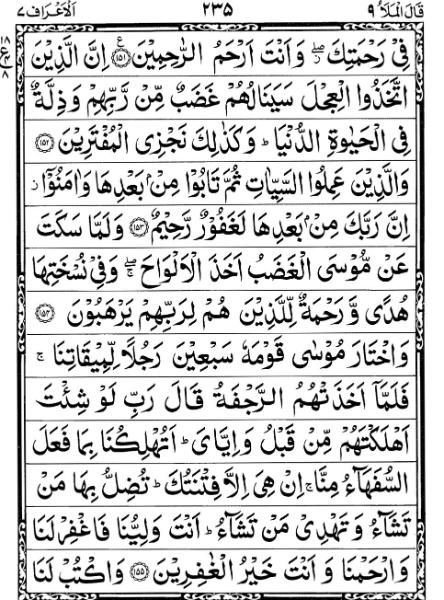 قَالَ الْمَلَاُ ٩ ٢٣٥ اَلْاَعْرَاف ٧
فِیْ رَحْمَتِكَ ۖ٘ وَ اَنْتَ اَرْحَمُ الرّٰحِمِیْنَ ۠﴿۱۵۱﴾ اِنَّ الَّذِیْنَ
اتَّخَذُوا الْعِجْلَ سَیَنَالُهُمْ غَضَبٌ مِّنْ رَّبِّهِمْ وَ ذِلَّةٌ
فِی الْحَیٰوةِ الدُّنْیَا ؕ وَ كَذٰلِكَ نَجْزِی الْمُفْتَرِیْنَ ﴿۱۵۲﴾
وَ الَّذِیْنَ عَمِلُوا السَّیِّاٰتِ ثُمَّ تَابُوْا مِنْۢ بَعْدِهَا وَ اٰمَنُوْۤا ؗ
اِنَّ رَبَّكَ مِنْۢ بَعْدِهَا لَغَفُوْرٌ رَّحِیْمٌ ﴿۱۵۳﴾ وَ لَمَّا سَكَتَ
عَنْ مُّوْسَی الْغَضَبُ اَخَذَ الْاَلْوَاحَ ۖۚ وَ فِیْ نُسْخَتِهَا
هُدًی وَّ رَحْمَةٌ لِّلَّذِیْنَ هُمْ لِرَبِّهِمْ یَرْهَبُوْنَ ﴿۱۵۴﴾
وَ اخْتَارَ مُوْسٰی قَوْمَهٗ سَبْعِیْنَ رَجُلًا لِّمِیْقَاتِنَا ۚ
فَلَمَّاۤ اَخَذَتْهُمُ الرَّجْفَةُ قَالَ رَبِّ لَوْ شِئْتَ
اَهْلَكْتَهُمْ مِّنْ قَبْلُ وَ اِیَّایَ ؕ اَتُهْلِكُنَا بِمَا فَعَلَ
السُّفَهَآءُ مِنَّا ۚ اِنْ هِیَ اِلَّا فِتْنَتُكَ ؕ تُضِلُّ بِهَا مَنْ
تَشَآءُ وَ تَهْدِیْ مَنْ تَشَآءُ ؕ اَنْتَ وَلِیُّنَا فَاغْفِرْ لَنَا
وَ ارْحَمْنَا وَ اَنْتَ خَیْرُ الْغٰفِرِیْنَ ﴿۱۵۵﴾ وَ اكْتُبْ لَنَا